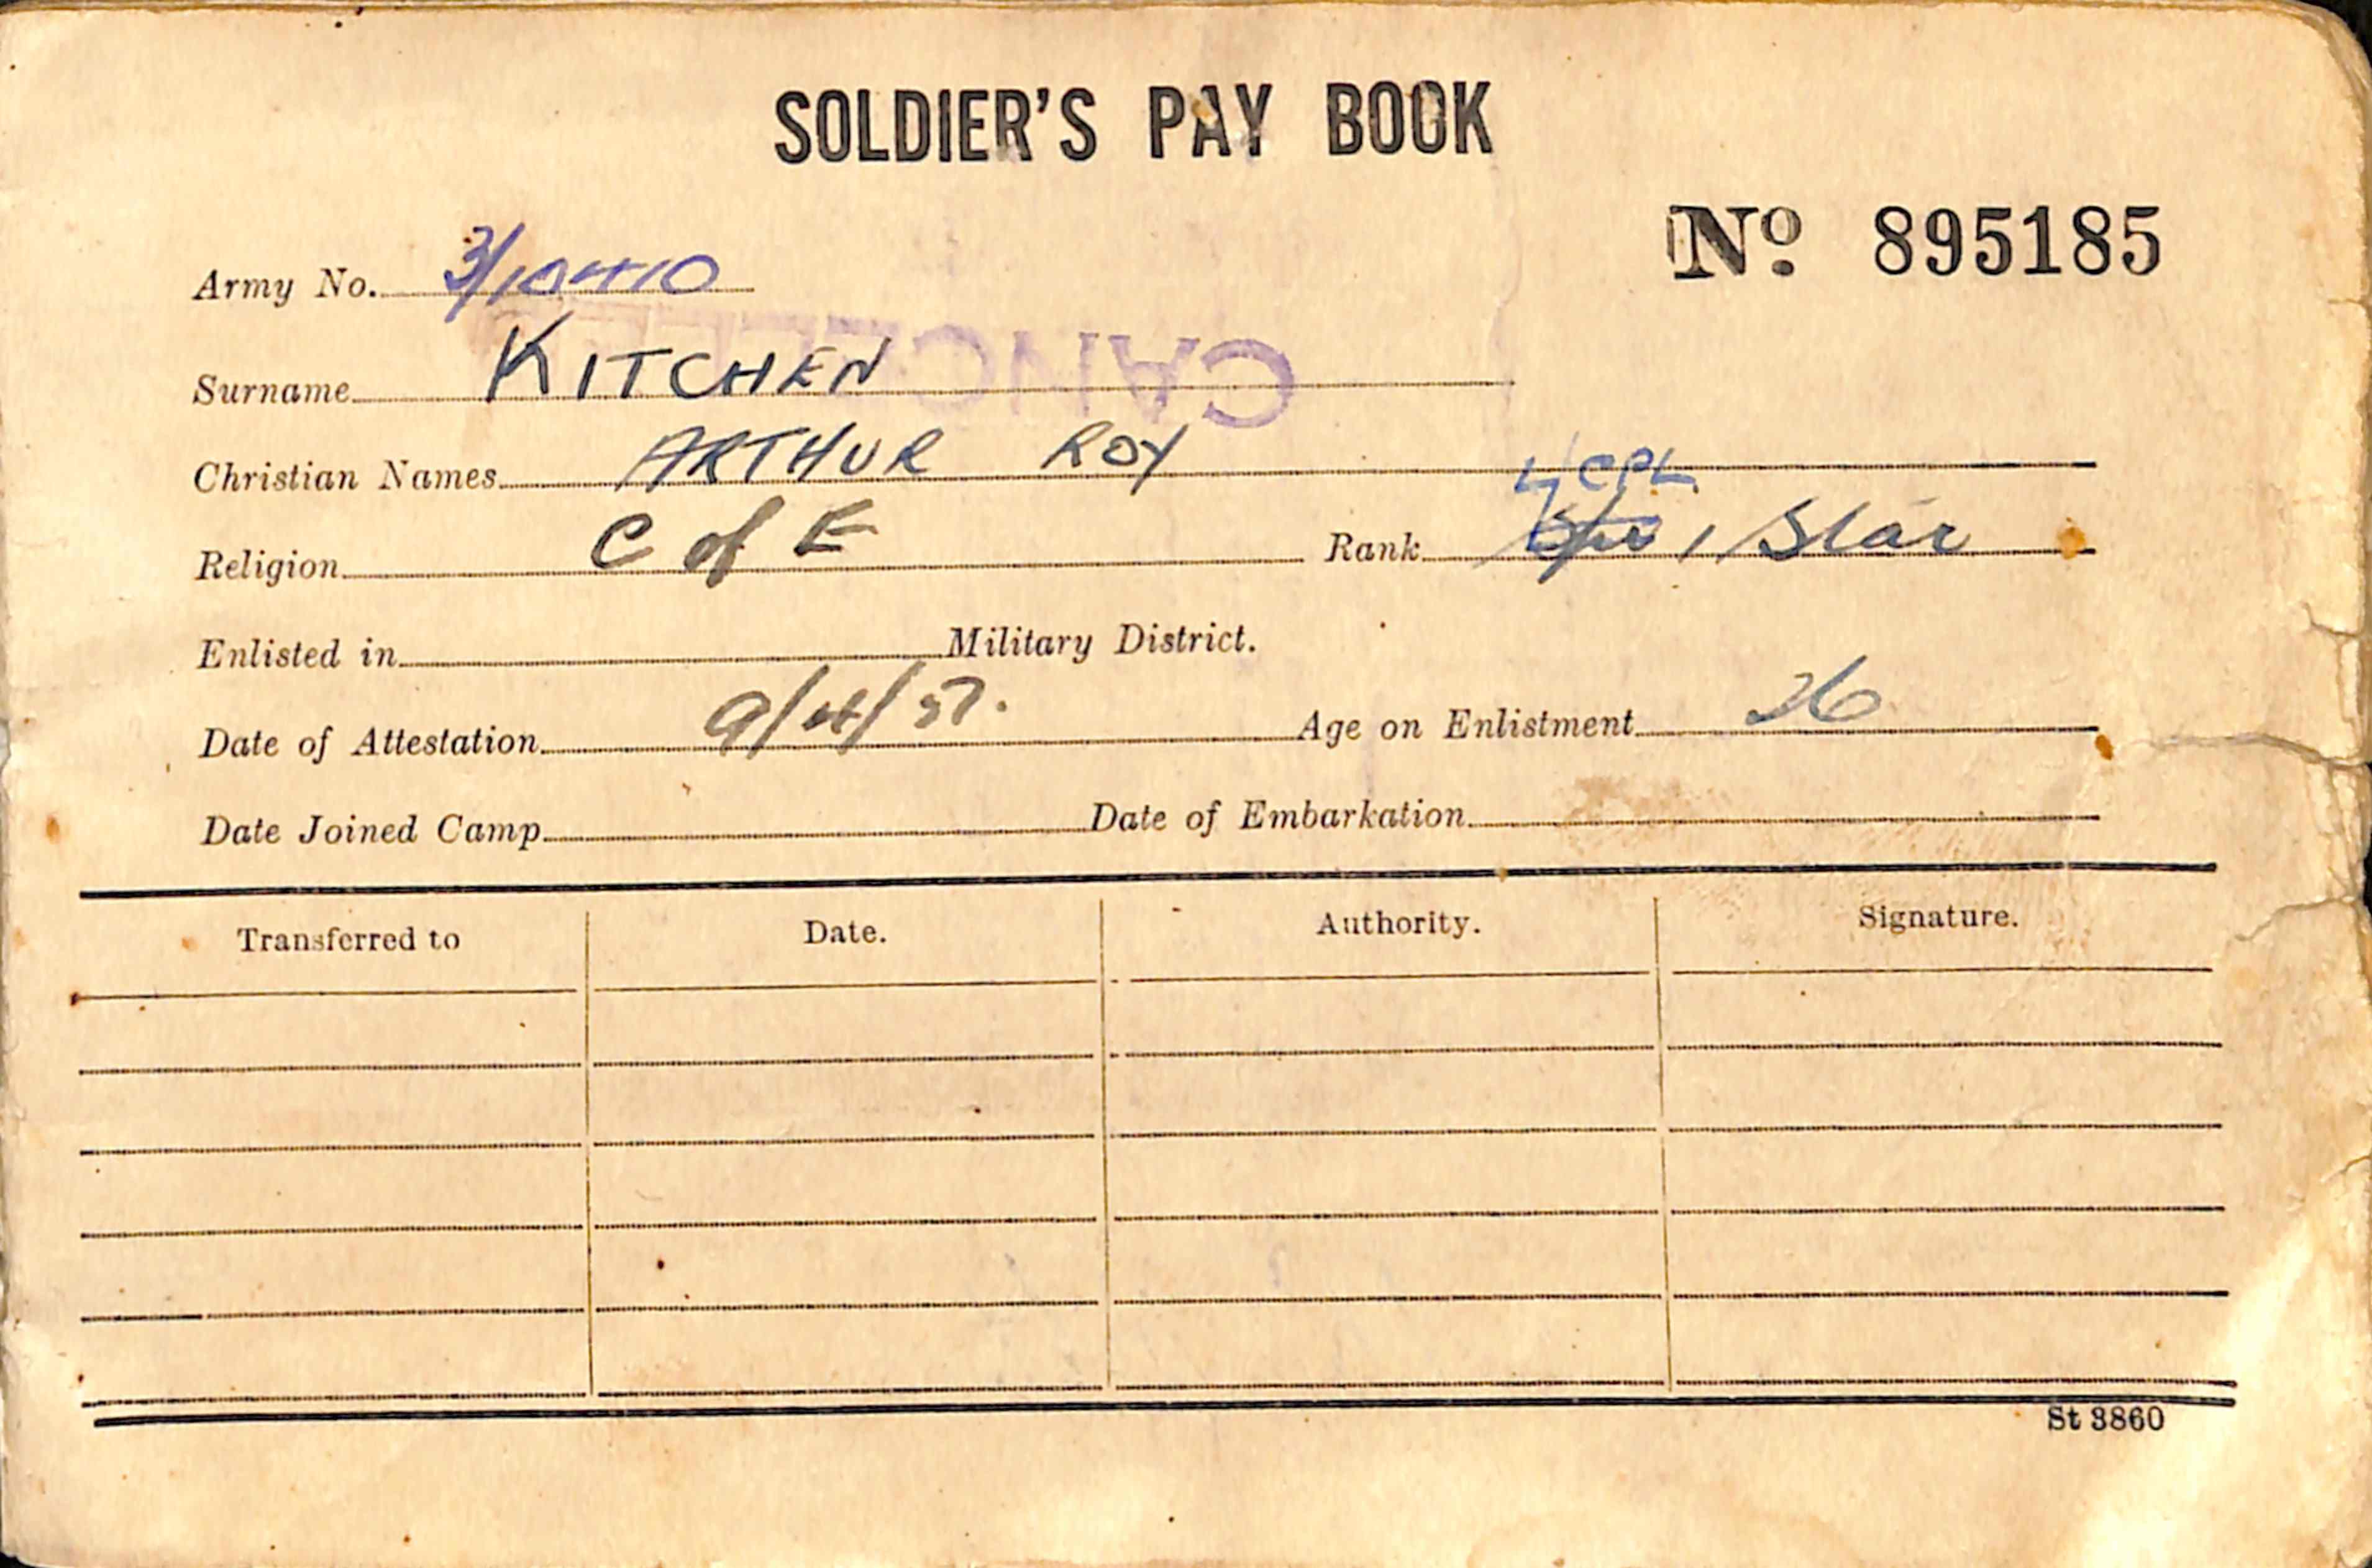 SOLDIER'S PAY BOOK
Nº 895185
Army No. 3/10410
Surname KITCHEN
CANCELLED
Christian Names ARTHUR ROY
L/CPL
Religion C of E Rank Spr 1 Star
Enlisted in Military District.
Date of Attestation 9/4/57. Age on Enlistment 26
Date Joined Camp Date of Embarkation
Transferred to Date. Authority. Signature.
St 3860